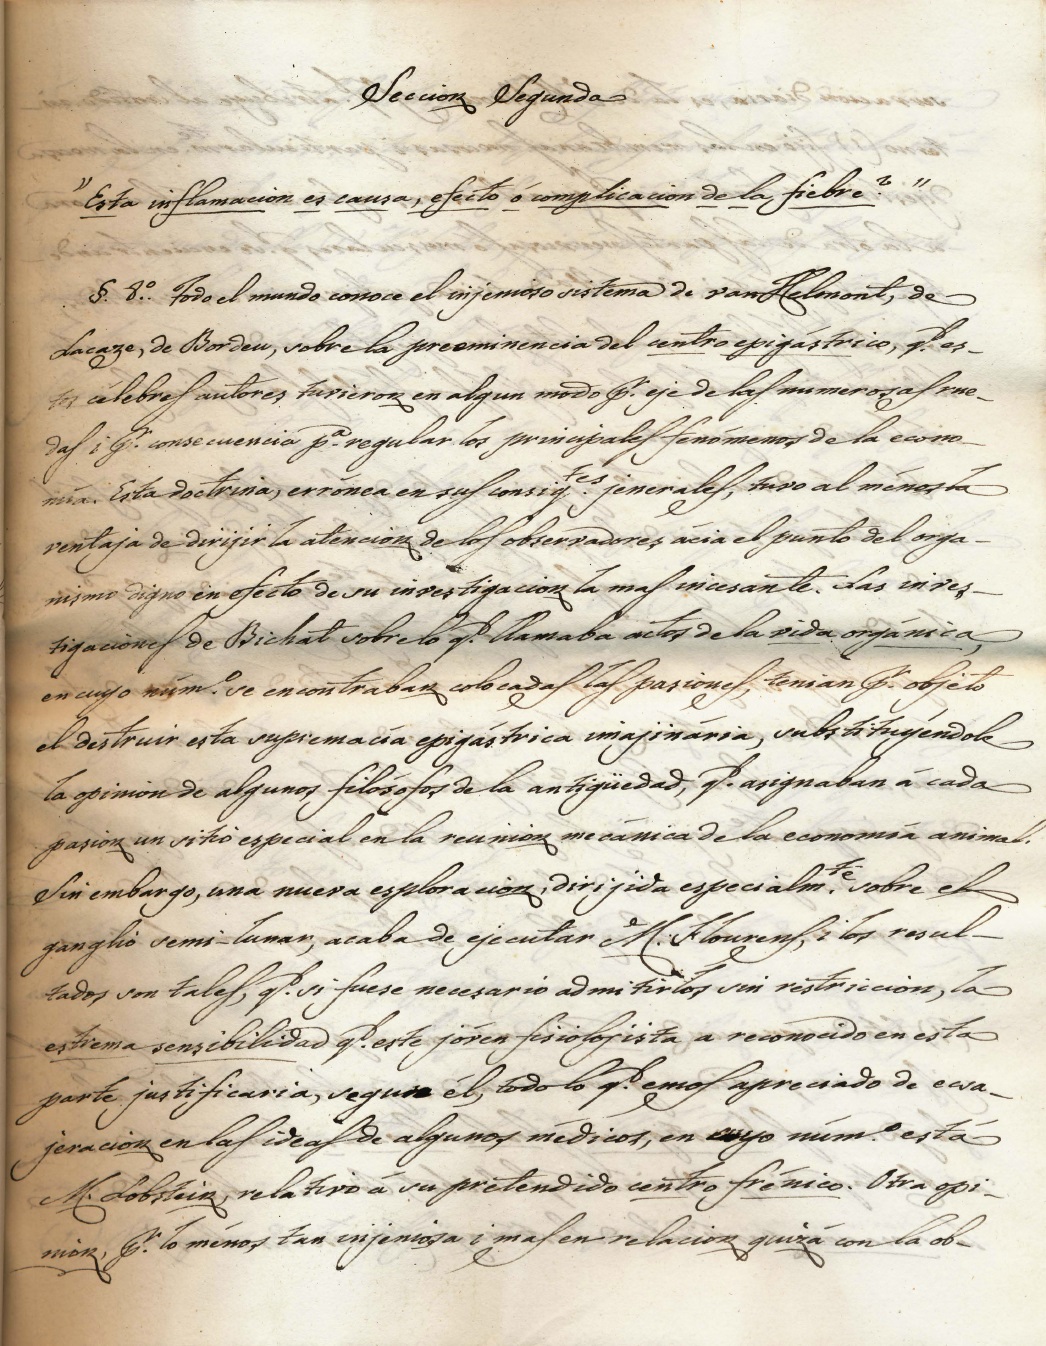 Seccion Segunda
"Esta inflamacion es causa, efecto ó complicacion de la fiebre?"
§. 8.º Todo el mundo conoce el injenioso sistema de van Helmont, de
Lacaze, de Bordeu, sobre la preeminencia del centro epigástrico, q.e es-
tos célebres autores tuvieron en algun modo p.r eje de las numerosas rue-
das i p.r consecuencia p.a regular los principales fenómenos de la econo-
mía. Esta doctrina, errónea en sus consig.tes jenerales, tuvo al ménos la
ventaja de dirijir la atencion de los observadores ácia el punto del orga-
nismo digno en efecto de su investigacion la mas incesante. Las inves-
tigaciones de Bichat sobre lo q.e llamaba actos de la vida orgánica,
en cuyo núm.º se encontraban colocadas las pasiones, tenian p.r objeto
el destruir esta supremacía epigástrica imajinária, substituyéndole
la opinion de algunos filósofos de la antigüedad, q.e asignaban á cada
pasion un sitio especial en la reunion mecánica de la economía animal.
Sin embargo, una nueva esploracion, dirijida especialm.te sobre el
ganglio semi-lunar, acaba de ejecutar M. Flourens, i los resul-
tados son tales, q.e si fuese necesario admitirlos sin restriccion, la
estrema sensibilidad q.e este jóven fisiolojista a reconocido en esta
parte justificaria, segun él, todo lo q.e emos apreciado de ecsa-
jeracion en las ideas de algunos médicos, en cuyo núm.º está
M. Lobstein, relativo á su pretendido centro frénico. Otra opi-
nion, p.r lo ménos tan injeniosa i mas en relacion quizá con la ob-